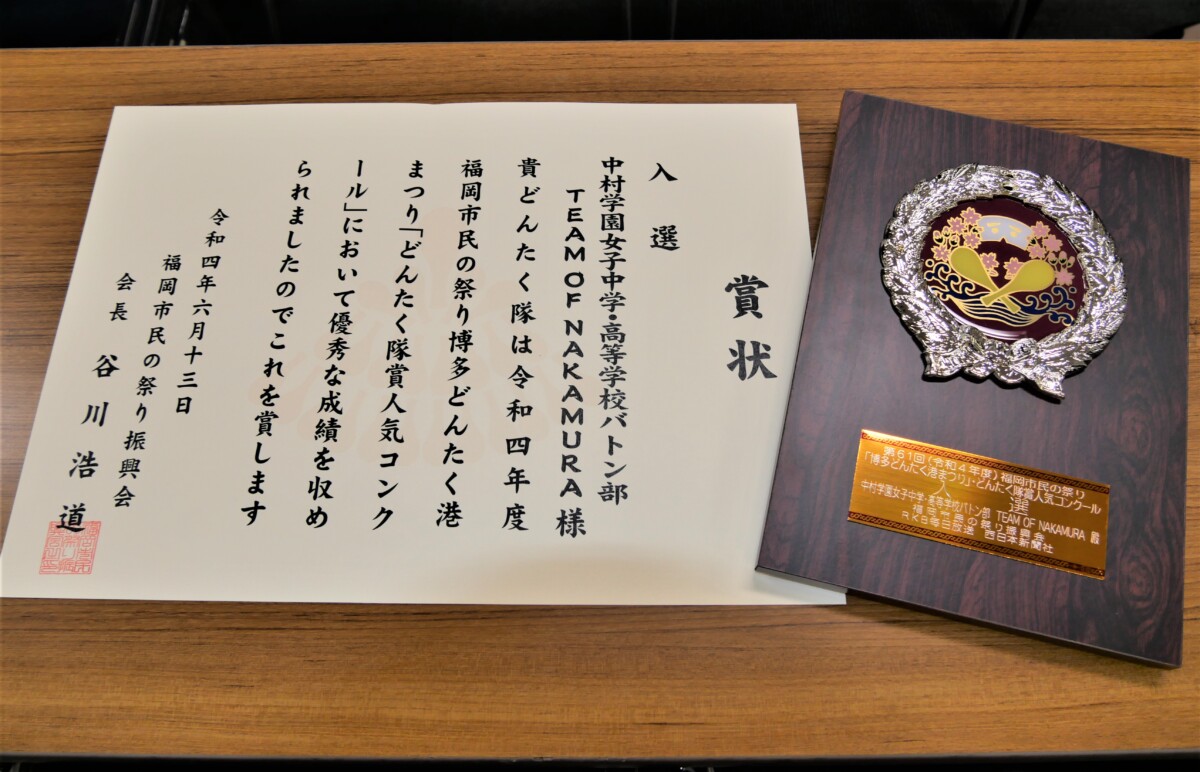 賞状
入選
中村学園女子中学・高等学校バトン部
TEAM OF NAKAMURA 様
貴どんたく隊は令和四年度
福岡市民の祭り博多どんたく港
まつり「どんたく隊賞人気コンク
ール」において優秀な成績を収め
られましたのでこれを賞します
令和四年六月十三日
福岡市民の祭り振興会
会長 谷川浩道
第61回(令和4年度)福岡市民の祭り
「博多どんたく港まつり」・どんたく隊賞人気コンクール
入選
中村学園女子中学・高等学校バトン部 TEAM OF NAKAMURA 殿
福岡市民の祭り振興会
RKB毎日放送 西日本新聞社